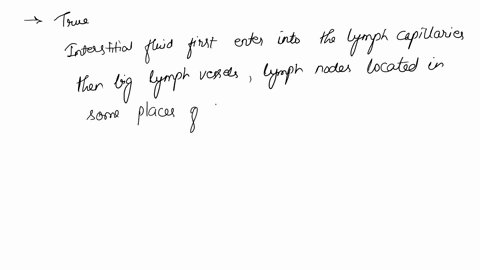 → True
Interstitial fluid first enter into the lymph capillaries
then big lymph vessels, lymph nodes located in
some places